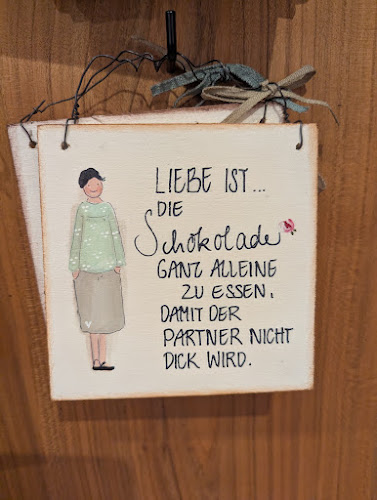 LIEBE IST...
DIE
Schokolade
GANZ ALLEINE
ZU ESSEN,
DAMIT DER
PARTNER NICHT
DICK WIRD.